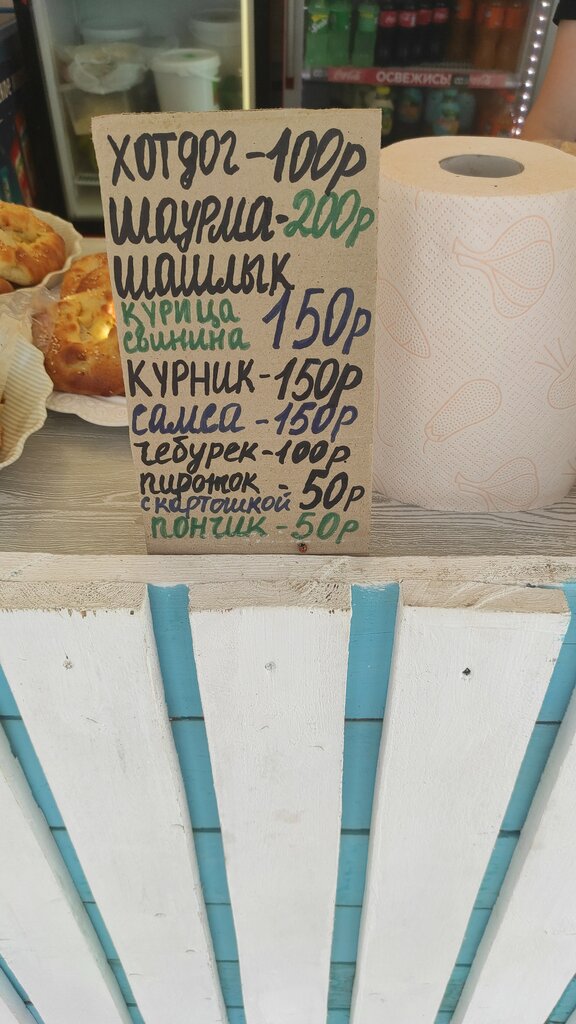 Coca-Cola ОСВЕЖИСЬ!
ХОТДОГ - 100р
ШАУРМА - 200р
ШАШЛЫК
КУРИЦА
свинина 150р
КУРНИК - 150р
САМСА - 150р
чебурек - 100р
пирожок - 50р
с картошкой
ПОНЧИК - 50р